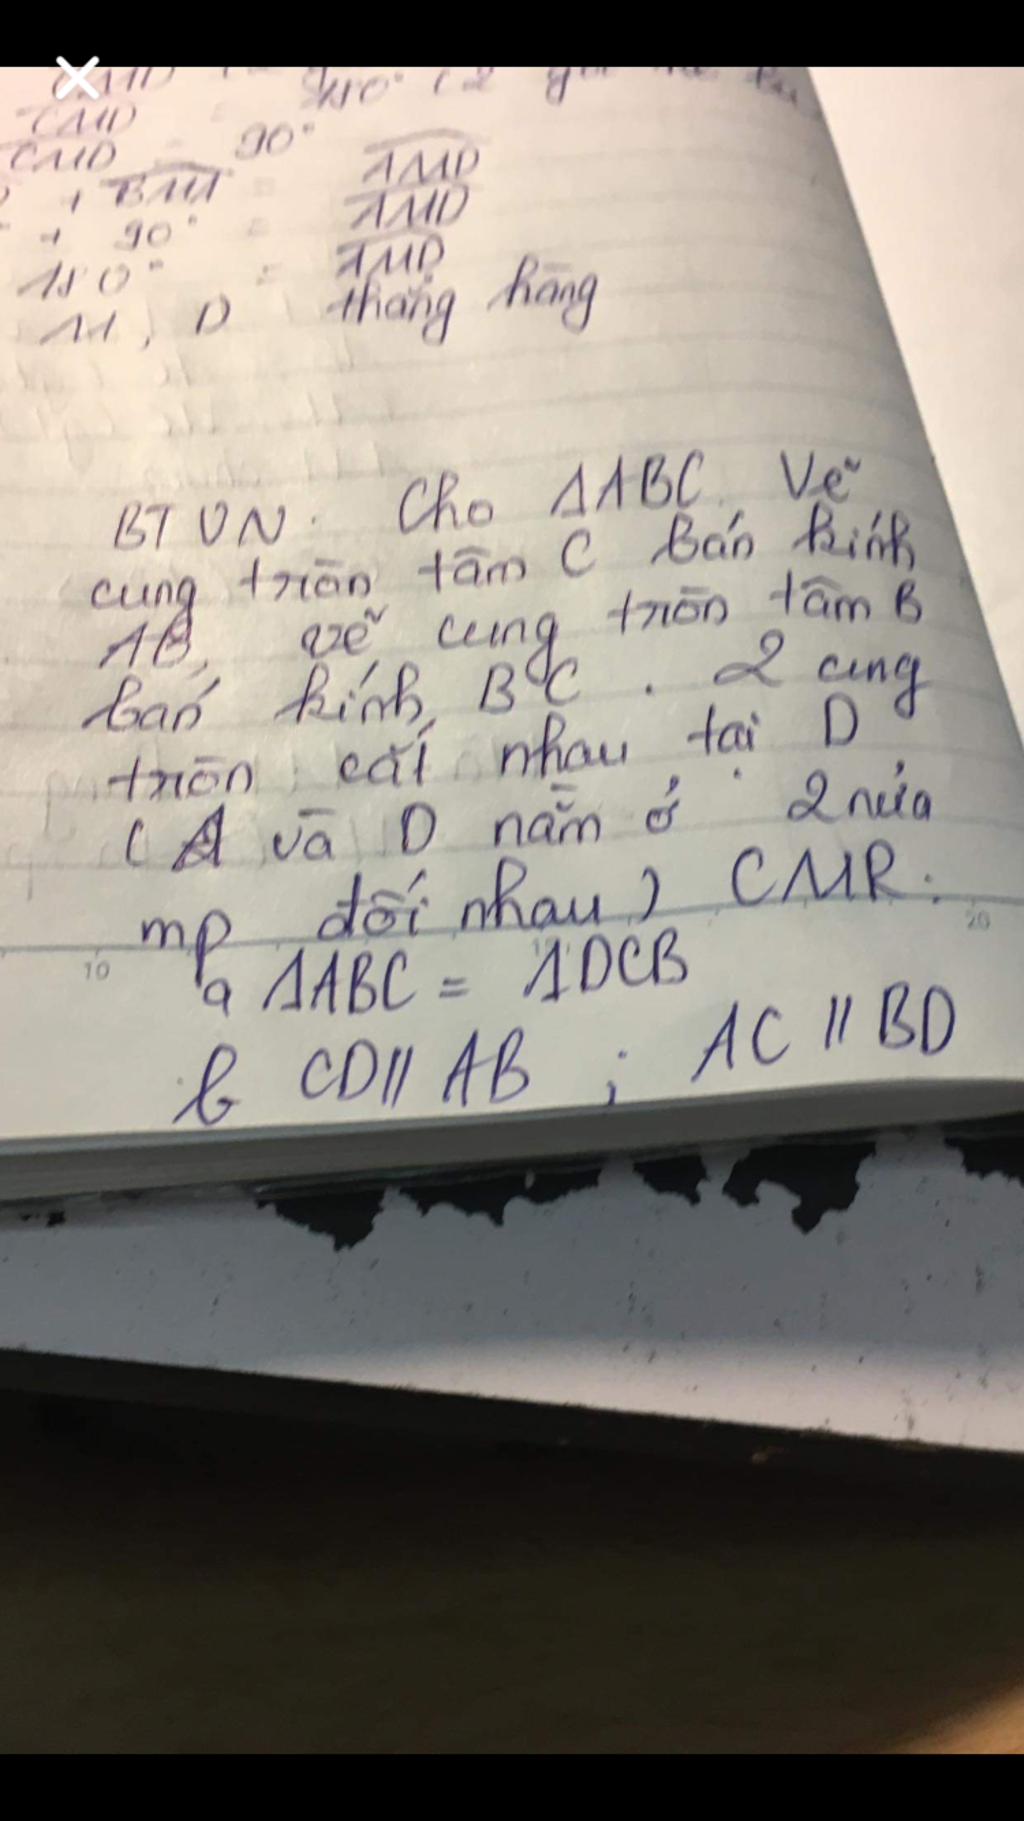 CMD
CMD
CMD = 90°
+ BMA = AMD
+ 90° = AMD
180° = AMD
M, D thẳng hàng
BTVN. Cho ΔABC. Vẽ
cung tròn tâm C bán kính
AB, vẽ cung tròn tâm B
bán kính BC. 2 cung
tròn cắt nhau tại D
(A và D nằm ở 2 nửa
mp đối nhau) CMR:
10
20
a ΔABC = ΔDCB
b CD // AB ; AC // BD